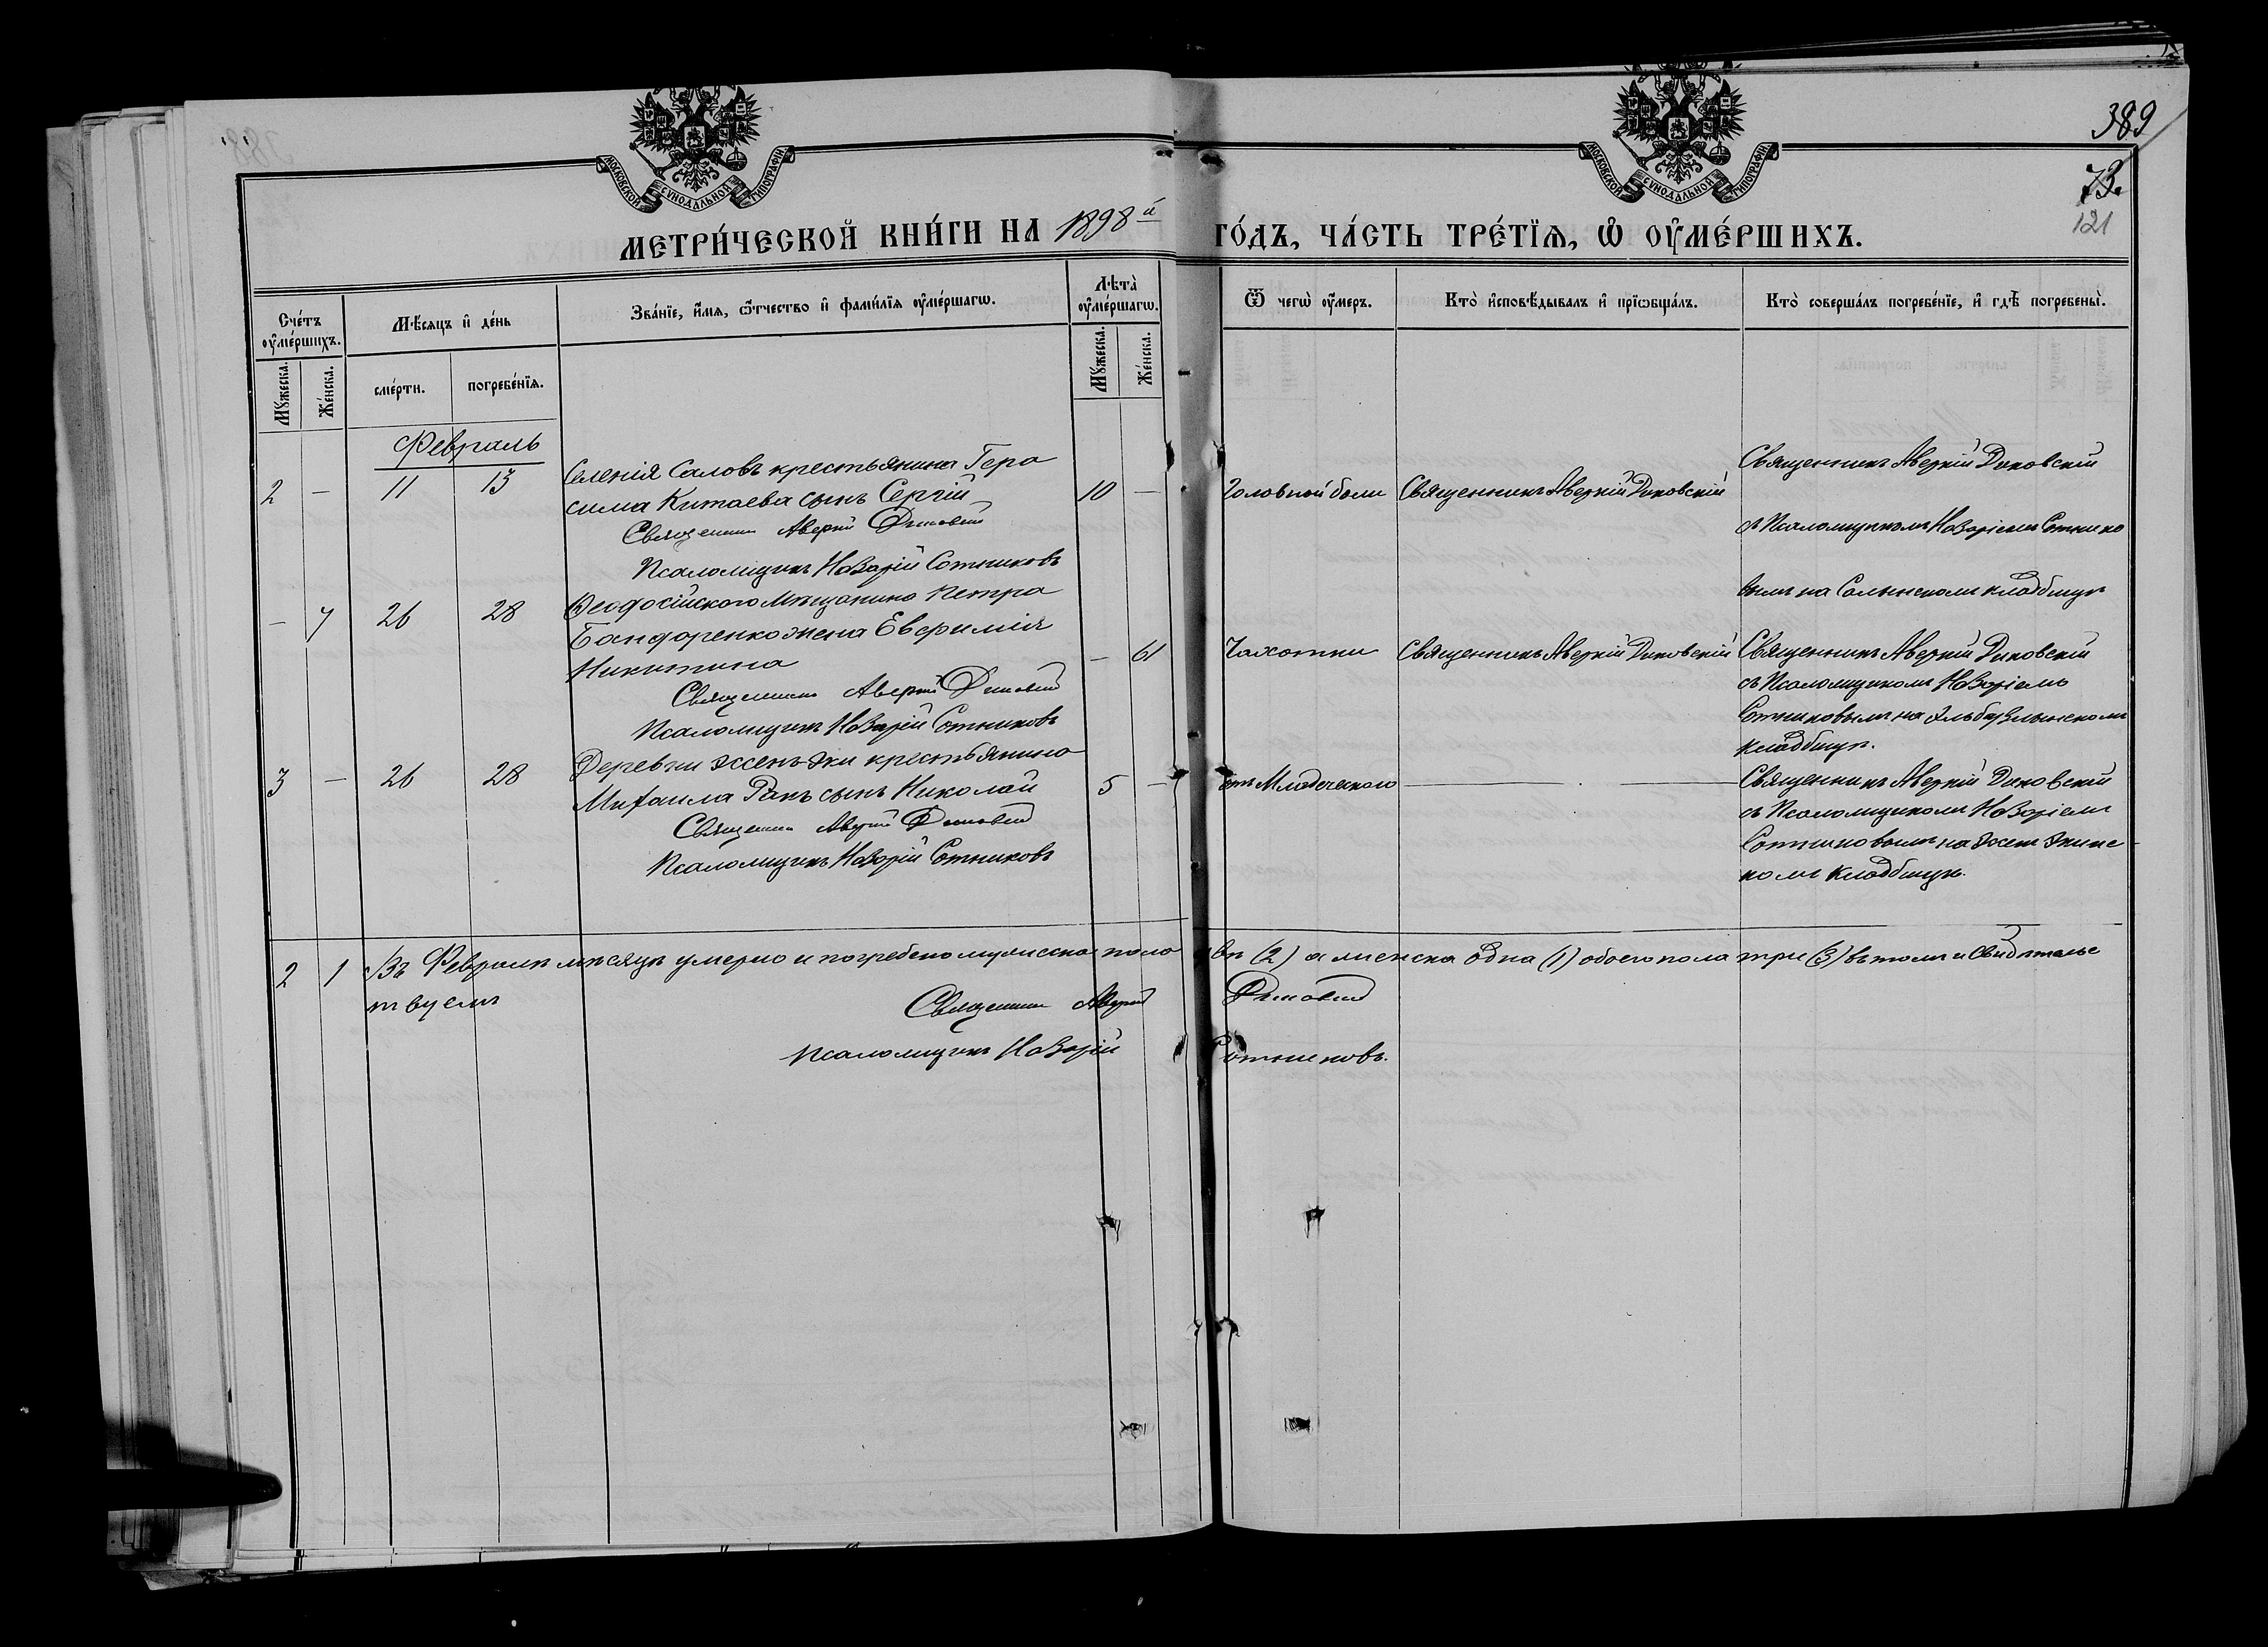 389
73.
121
МОСКОВСКОЙ СУНОДАЛЬНОЙ ТИПОГРАФІИ
МОСКОВСКОЙ СУНОДАЛЬНОЙ ТИПОГРАФІИ
МЕТРИ́ЧЕСКОЙ КНИ́ГИ НА 1898й ГО́ДЪ, ЧА́СТЬ ТРЕ́ТЇѦ, Ѡ ОУ҆МЕ́РШИХЪ.
Сче́тъ оу҆ме́ршихъ.
Мꙋжеска.
Же́нска.
Мѣ́сяцъ и҆ де́нь
сме́рти.
погребе́нїѧ.
Зва́нїе, и҆́мѧ, ѻ҆́тчество и҆ фами́лїѧ оу҆ме́ршагѡ.
Лѣ́та оу҆ме́ршагѡ.
Мꙋжеска.
Же́нска.
Ѿ чегѡ̀ оу҆́меръ.
Кто̀ и҆сповѣ́дывалъ и҆ прїѡбща́лъ.
Кто̀ соверша́лъ погребе́нїе, и҆ гдѣ̀ погребены̀.
Февраль
2 — 11 13
Селенія Саловъ крестьянина Гера
сима Китаева сынъ Сергій
Священникъ Аверкій Диковскій
Псаломщикъ Назарій Сотниковъ
10 —
Головной боли
Священникъ Аверкій Диковскій
Священникъ Аверкій Диковскій
съ Псаломщикомъ Назаріемъ Сотнико
вымъ на Салынскомъ кладбищѣ
— 7 26 28
Ѳеодосійскаго мѣщанина Петра
Бандоренко жена Евфимія
Никитина
Священникъ Аверкій Диковскій
Псаломщикъ Назарій Сотниковъ
— 61
Чахотки
Священникъ Аверкій Диковскій
Священникъ Аверкій Диковскій
съ Псаломщикомъ Назаріемъ
Сотниковымъ на
кладбищѣ.
3 — 26 28
Деревни крестьянина
Михаила Ракъ сынъ Николай
Священникъ Аверкій Диковскій
Псаломщикъ Назарій Сотниковъ
5 —
отъ Младенческаго
Священникъ Аверкій Диковскій
съ Псаломщикомъ Назаріемъ
Сотниковымъ на
комъ кладбищѣ.
2 1 Въ Февралѣ мѣсяцѣ умерло и погребено мужеска пола два (2) а женска одна (1) обоего пола три (3) въ томъ и свидѣтельс
твуемъ
Священникъ Аверкій Диковскій
Псаломщикъ Назарій Сотниковъ.